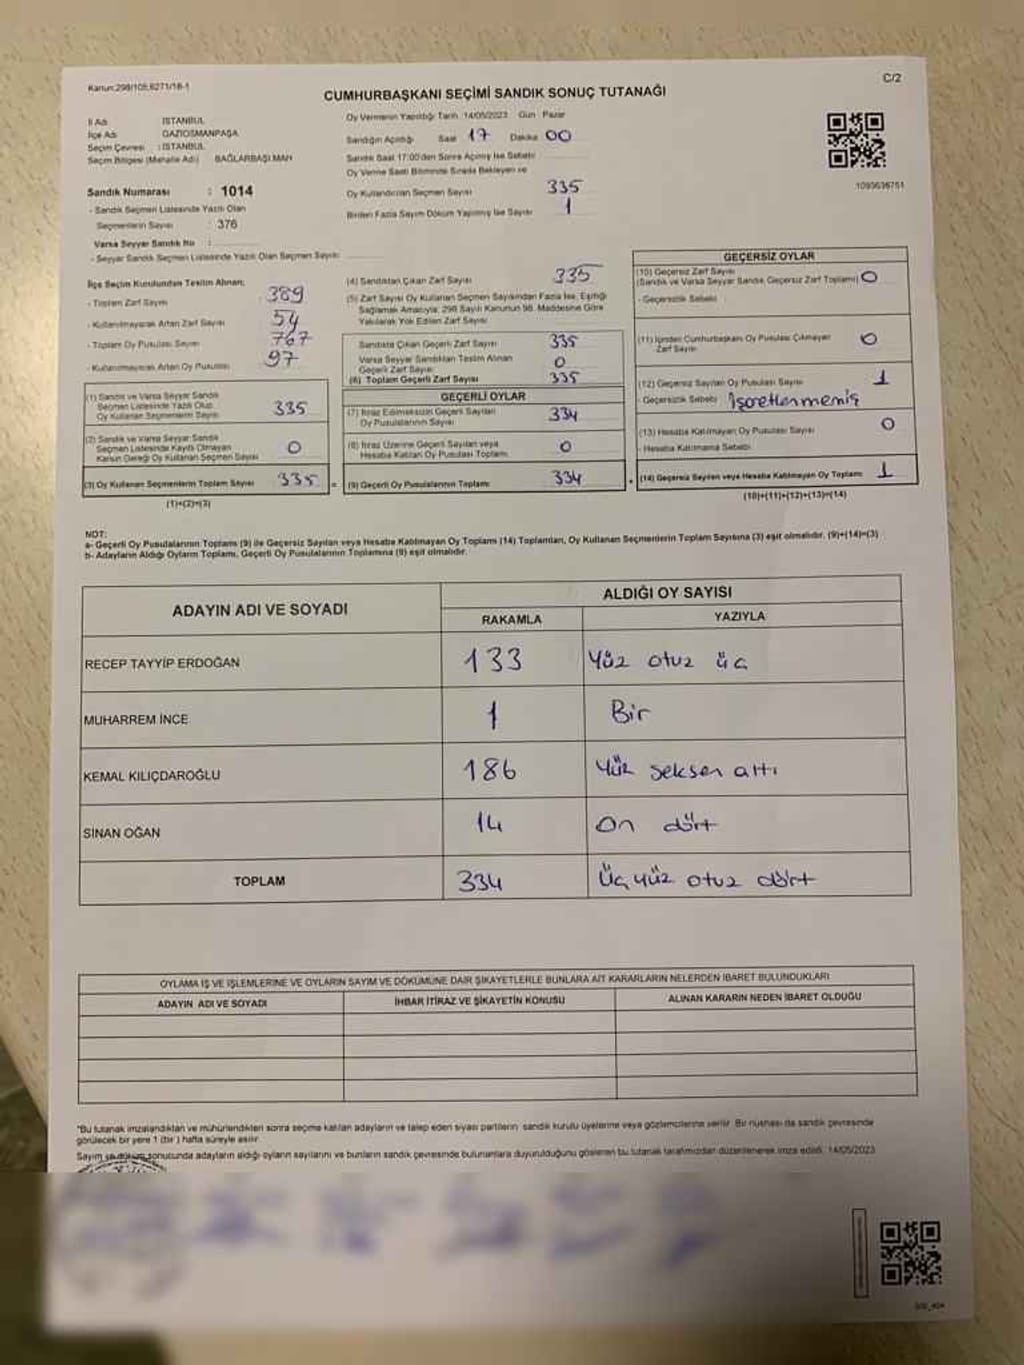 Kanun:298/105,6271/18-1
C/2
CUMHURBAŞKANI SEÇİMİ SANDIK SONUÇ TUTANAĞI
İl Adı : İSTANBUL
İlçe Adı : GAZİOSMANPAŞA
Seçim Çevresi : İSTANBUL
Seçim Bölgesi (Mahalle Adı) BAĞLARBAŞI MAH
Sandık Numarası : 1014
- Sandık Seçmen Listesinde Yazılı Olan
Seçmenlerin Sayısı : 376
Varsa Seyyar Sandık No :
- Seyyar Sandık Seçmen Listesinde Yazılı Olan Seçmen Sayısı
Oy Vermenin Yapıldığı Tarih 14/05/2023 Gün Pazar
Sandığın Açıldığı Saat 17 Dakika 00
Sandık Saat 17:00'den Sonra Açılmış İse Sebebi
Oy Verme Saati Bitiminde Sırada Bekleyen ve
Oy Kullandırılan Seçmen Sayısı 335
Birden Fazla Sayım Döküm Yapılmış İse Sayısı 1
1095636751
İlçe Seçim Kurulundan Teslim Alınan;
- Toplam Zarf Sayısı 389
- Kullanılmayarak Artan Zarf Sayısı 54
- Toplam Oy Pusulası Sayısı 767
- Kullanılmayarak Artan Oy Pusulası 97
(1) Sandık ve Varsa Seyyar Sandık
Seçmen Listesinde Yazılı Olup
Oy Kullanan Seçmenlerin Sayısı 335
(2) Sandık ve Varsa Seyyar Sandık
Seçmen Listesinde Kayıtlı Olmayan
Kanun Gereği Oy Kullanan Seçmen Sayısı 0
(3) Oy Kullanan Seçmenlerin Toplam Sayısı 335
(1)+(2)=(3)
(4) Sandıktan Çıkan Zarf Sayısı 335
(5) Zarf Sayısı Oy Kullanan Seçmen Sayısından Fazla İse, Eşitliği
Sağlamak Amacıyla; 298 Sayılı Kanunun 98. Maddesine Göre
Yakılarak Yok Edilen Zarf Sayısı
Sandıkta Çıkan Geçerli Zarf Sayısı 335
Varsa Seyyar Sandıktan Teslim Alınan
Geçerli Zarf Sayısı 0
(6) Toplam Geçerli Zarf Sayısı 335
GEÇERLİ OYLAR
(7) İtiraz Edilmeksizin Geçerli Sayılan
Oy Pusulalarının Sayısı 334
(8) İtiraz Üzerine Geçerli Sayılan veya
Hesaba Katılan Oy Pusulası Toplamı 0
= (9) Geçerli Oy Pusulalarının Toplamı 334
GEÇERSİZ OYLAR
(10) Geçersiz Zarf Sayısı
(Sandık ve Varsa Seyyar Sandık Geçersiz Zarf Toplamı) 0
- Geçersizlik Sebebi
(11) İçinden Cumhurbaşkanı Oy Pusulası Çıkmayan
Zarf Sayısı 0
(12) Geçersiz Sayılan Oy Pusulası Sayısı 1
- Geçersizlik Sebebi İşaretlenmemiş
(13) Hesaba Katılmayan Oy Pusulası Sayısı 0
- Hesaba Katılmama Sebebi
+ (14) Geçersiz Sayılan veya Hesaba Katılmayan Oy Toplamı 1
(10)+(11)+(12)+(13)=(14)
NOT:
a- Geçerli Oy Pusulalarının Toplamı (9) ile Geçersiz Sayılan veya Hesaba Katılmayan Oy Toplamı (14) Toplamları, Oy Kullanan Seçmenlerin Toplam Sayısına (3) eşit olmalıdır. (9)+(14)=(3)
b- Adayların Aldığı Oyların Toplamı, Geçerli Oy Pusulalarının Toplamına (9) eşit olmalıdır.
ADAYIN ADI VE SOYADI
ALDIĞI OY SAYISI
RAKAMLA YAZIYLA
RECEP TAYYİP ERDOĞAN 133 Yüz otuz üç
MUHARREM İNCE 1 Bir
KEMAL KILIÇDAROĞLU 186 Yüz seksen altı
SİNAN OĞAN 14 On dört
TOPLAM 334 Üç yüz otuz dört
OYLAMA İŞ VE İŞLEMLERİNE VE OYLARIN SAYIM VE DÖKÜMÜNE DAİR ŞİKAYETLERLE BUNLARA AİT KARARLARIN NELERDEN İBARET BULUNDUKLARI
ADAYIN ADI VE SOYADI İHBAR İTİRAZ VE ŞİKAYETİN KONUSU ALINAN KARARIN NEDEN İBARET OLDUĞU
"Bu tutanak imzalandıktan ve mühürlendikten sonra seçime katılan adayların ve talep eden siyasi partilerin sandık kurulu üyelerine veya gözlemcilerine verilir. Bir nüshası da sandık çevresinde
görülecek bir yere 1 (bir ) hafta süreyle asılır.
Sayım ve döküm sonucunda adayların aldığı oyların sayılarını ve bunların sandık çevresinde bulunanlara duyurulduğunu gösteren bu tutanak tarafımızdan düzenlenerek imza edildi. 14/05/2023